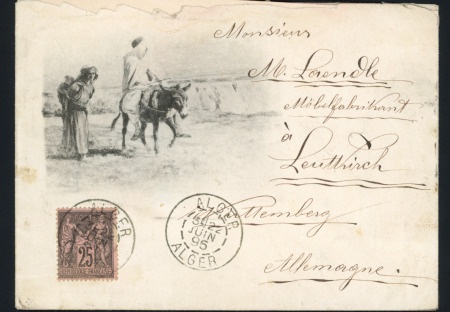 Monsieur
M. Laendle
Möbelfabrikant
à
Leutkirch
Württemberg
Allemagne.
ALGER
JUIN
95
ALGER
ALGER
25